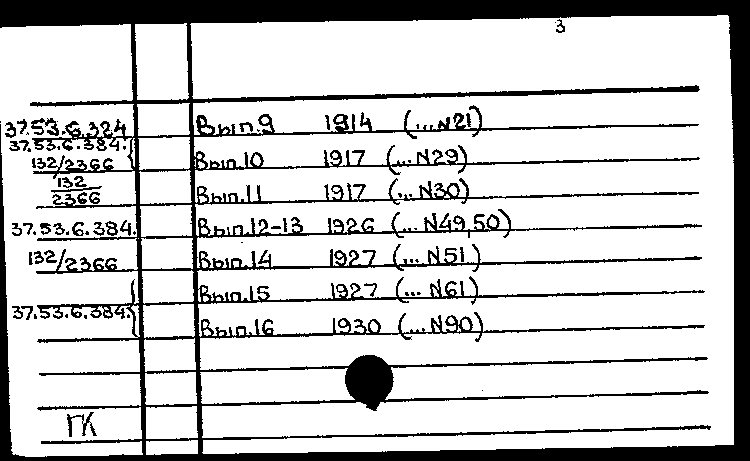 3
37.53.6.324 Вып.9 1914 (...N21)
37.53.6.384. Вып.10 1917 (...N29)
132/2366
132/2366 Вып.11 1917 (...N30)
37.53.6.384. Вып.12-13 1926 (...N49,50)
132/2366 Вып.14 1927 (...N51)
Вып.15 1927 (...N61)
37.53.6.384. Вып.16 1930 (...N90)
ГК